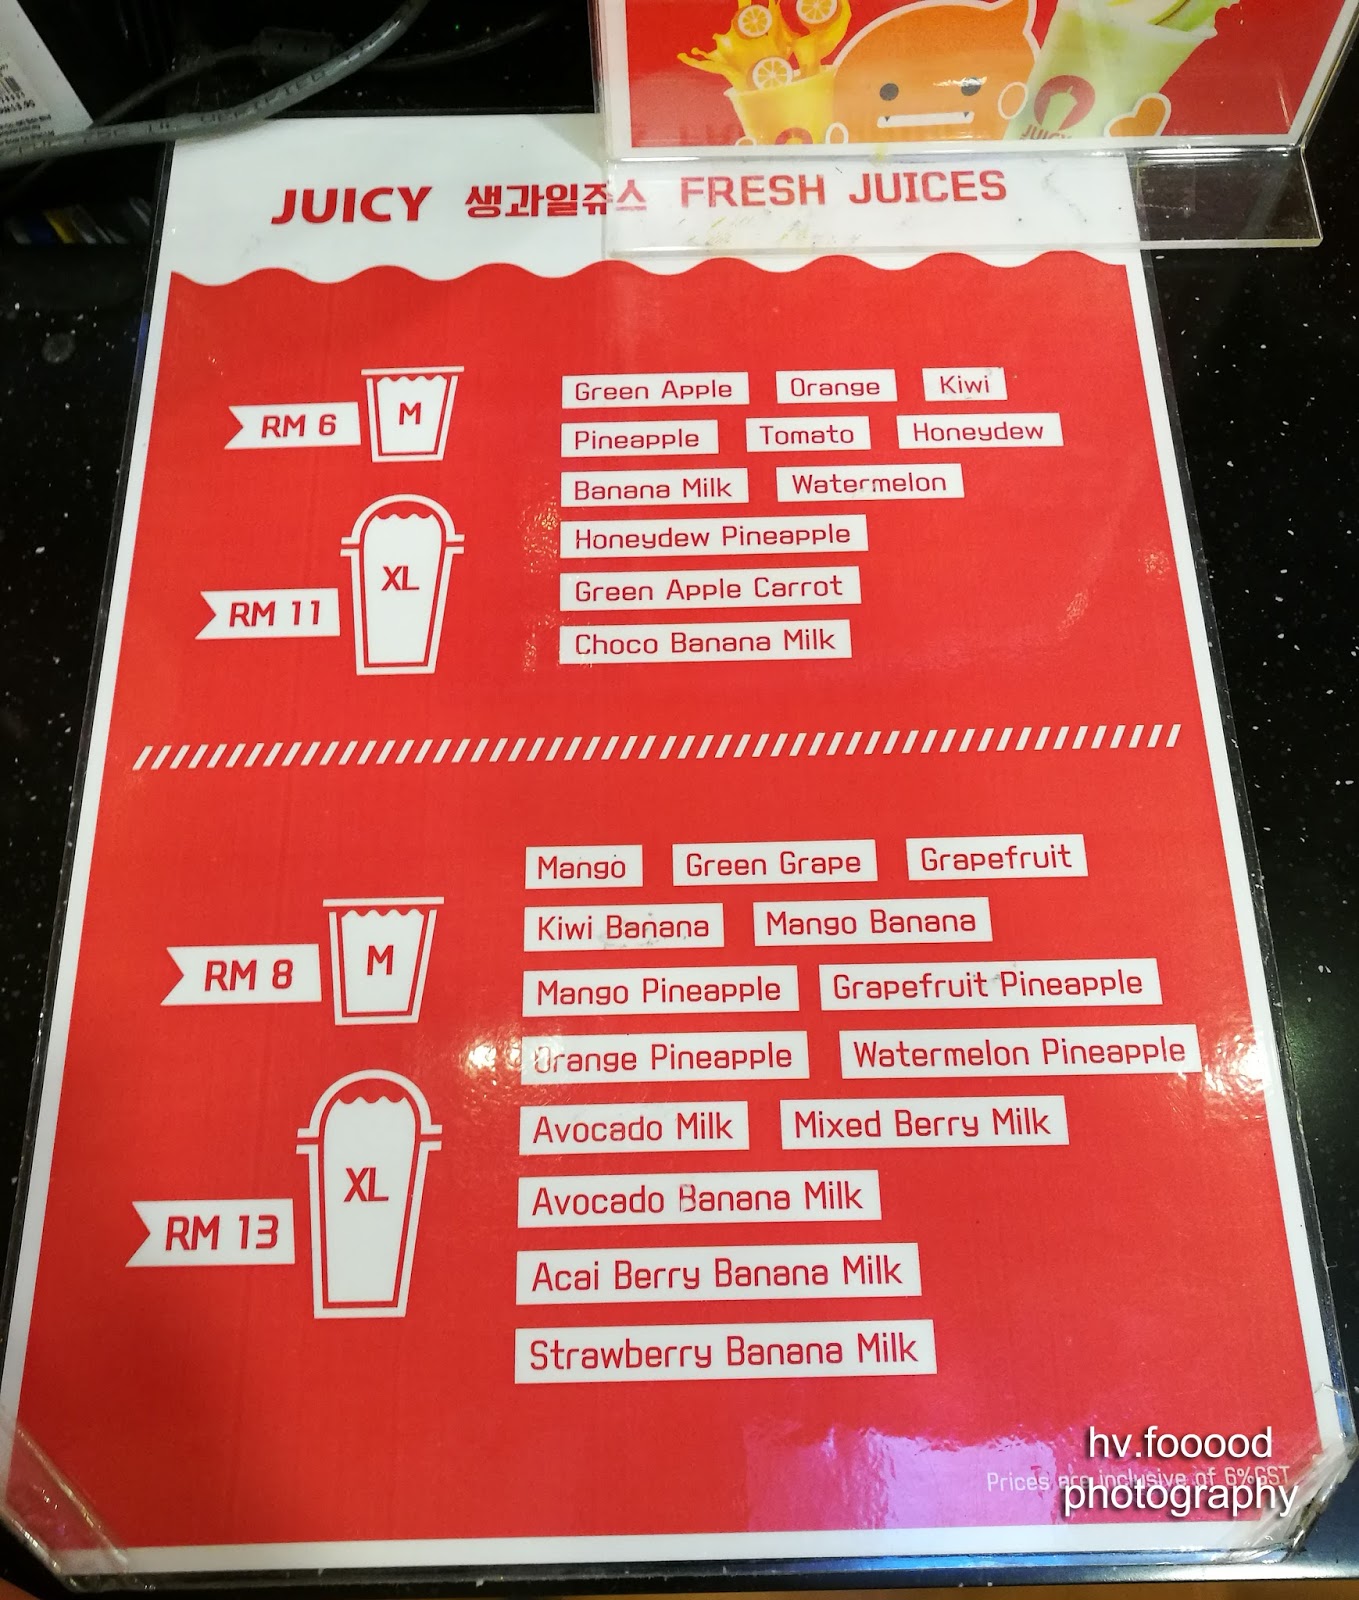 JUICY 생과일쥬스 FRESH JUICES
RM 6 M
RM 11 XL
Green Apple Orange Kiwi
Pineapple Tomato Honeydew
Banana Milk Watermelon
Honeydew Pineapple
Green Apple Carrot
Choco Banana Milk
RM 8 M
RM 13 XL
Mango Green Grape Grapefruit
Kiwi Banana Mango Banana
Mango Pineapple Grapefruit Pineapple
Orange Pineapple Watermelon Pineapple
Avocado Milk Mixed Berry Milk
Avocado Banana Milk
Acai Berry Banana Milk
Strawberry Banana Milk
Prices are inclusive of 6%GST
hv.fooood
photography